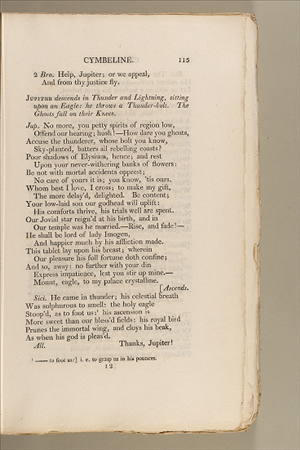 CYMBELINE. 115
2 Bro. Help, Jupiter; or we appeal,
And from thy justice fly.
JUPITER descends in Thunder and Lightning, sitting
upon an Eagle: he throws a Thunder-bolt. The
Ghosts fall on their Knees.
Jup. No more, you petty spirits of region low,
Offend our hearing; hush!—How dare you ghosts,
Accuse the thunderer, whose bolt you know,
Sky-planted, batters all rebelling coasts?
Poor shadows of Elysium, hence; and rest
Upon your never-withering banks of flowers:
Be not with mortal accidents opprest;
No care of yours it is; you know, 'tis ours.
Whom best I love, I cross; to make my gift,
The more delay'd, delighted. Be content;
Your low-laid son our godhead will uplift:
His comforts thrive, his trials well are spent.
Our Jovial star reign'd at his birth, and in
Our temple was he married.—Rise, and fade!—
He shall be lord of lady Imogen,
And happier much by his affliction made.
This tablet lay upon his breast; wherein
Our pleasure his full fortune doth confine;
And so, away: no further with your din
Express impatience, lest you stir up mine.—
Mount, eagle, to my palace crystalline.
[Ascends.
Sici. He came in thunder; his celestial breath
Was sulphurous to smell: the holy eagle
Stoop'd, as to foot us:¹ his ascension is
More sweet than our bless'd fields: his royal bird
Prunes the immortal wing, and cloys his beak,
As when his god is pleas'd.
All. Thanks, Jupiter!
¹ —— to foot us:] i. e. to grasp us in his pounces.
I 2